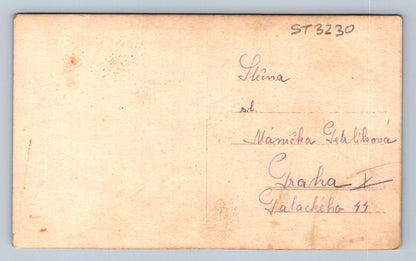 ST3230
Slečna
sl.
Mánička Petrlíková
Praha X
Palackého 44